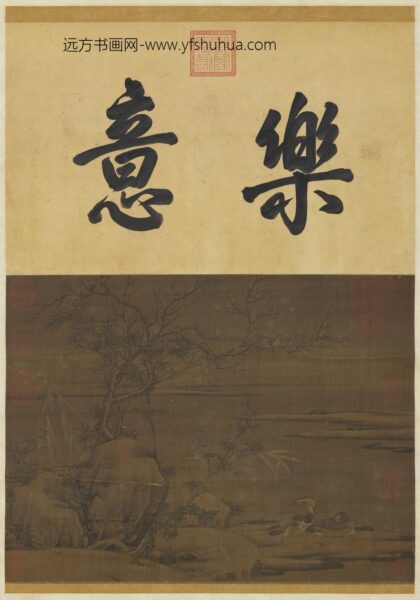 远方书画网-www.yfshuhua.com
樂意